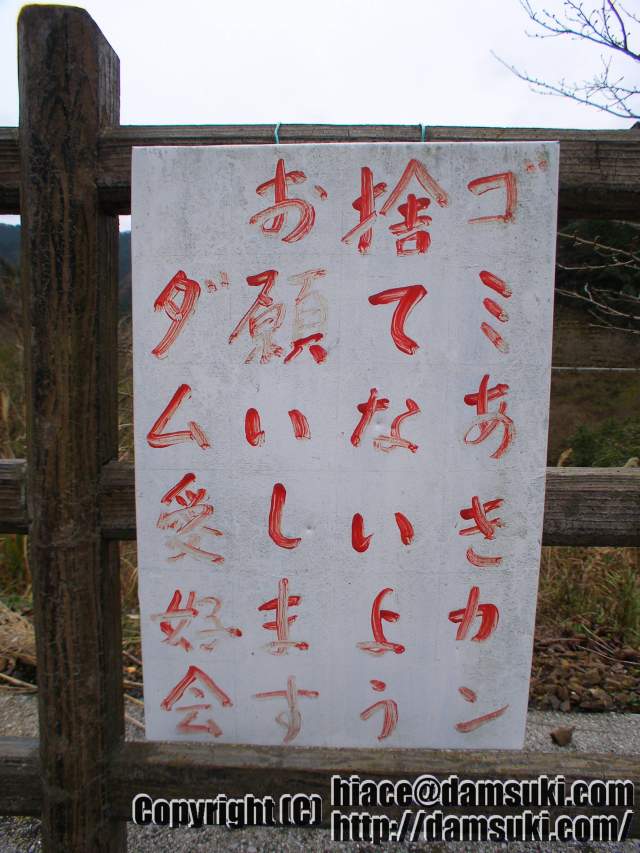 ゴミあきカン
捨てないよう
お願いします
ダム愛好会
Copyright (C) hiace@damsuki.com
http://damsuki.com/